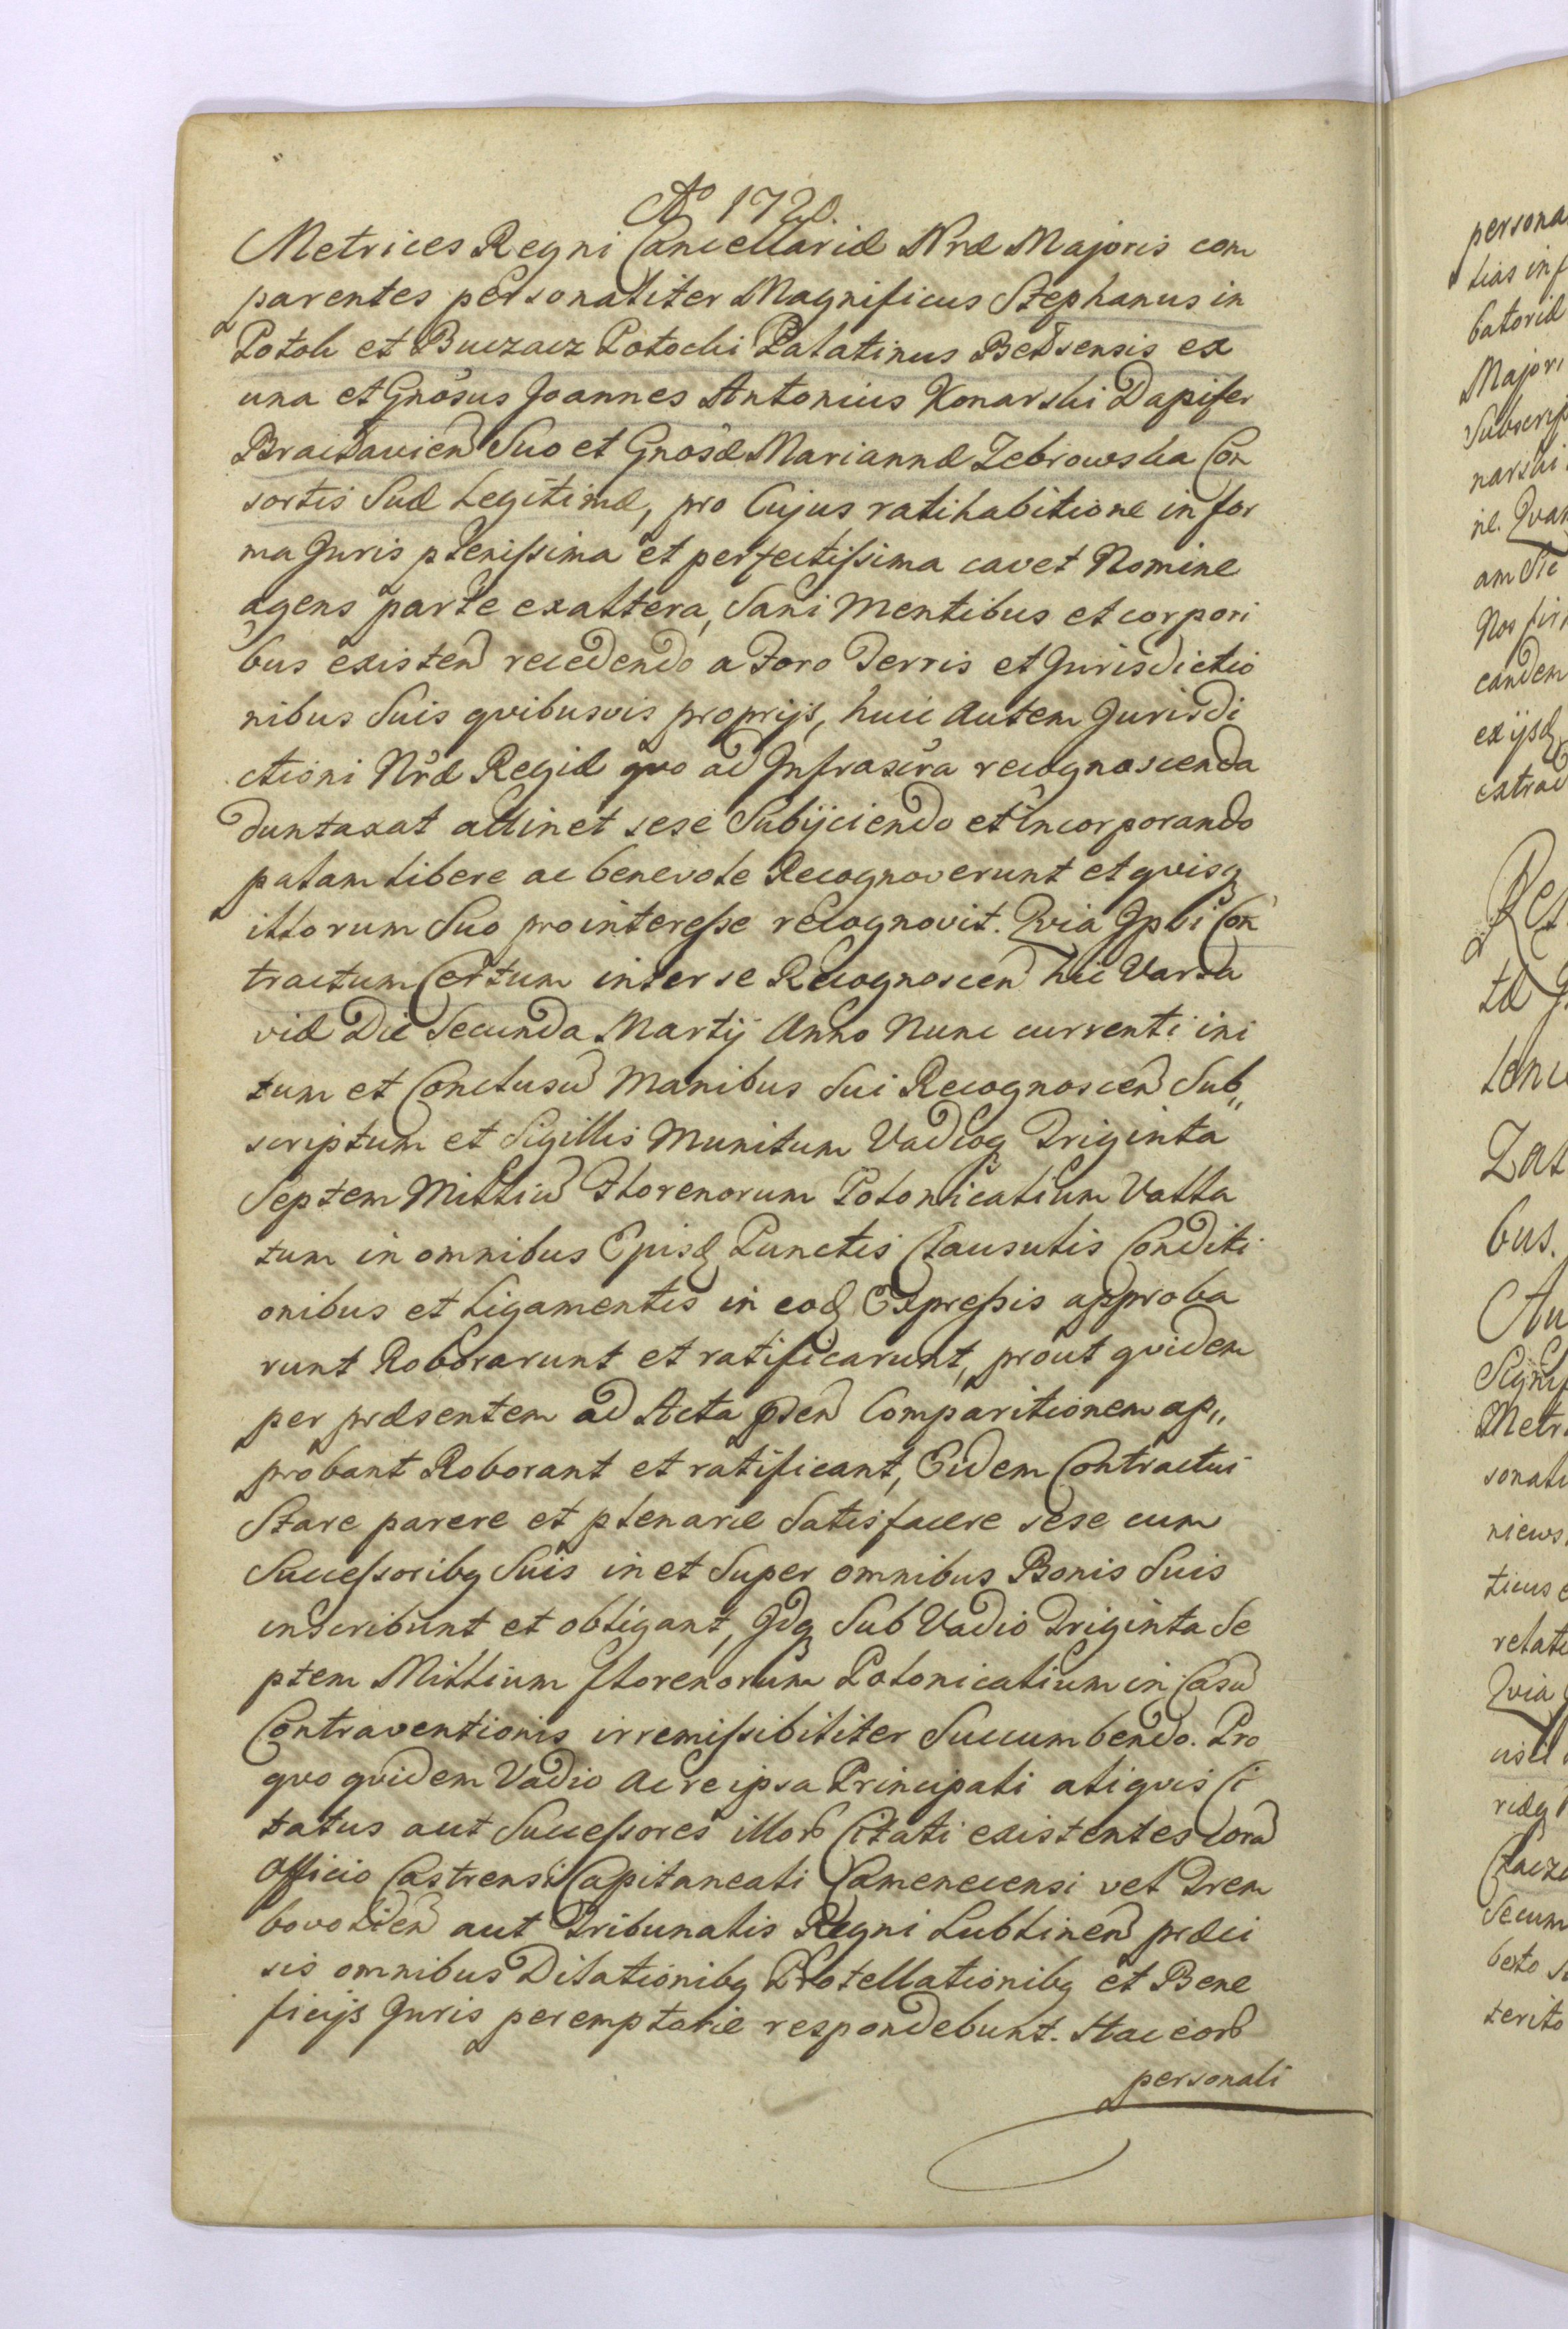 Aº 1720.
Metrices Regni Cancellariæ Nræ Majoris com
parentes personaliter Magnificus Stephanus in
Potok et Buczacz Potocki Palatinus Belsensis ex
una et Gnosus Joannes Antonius Konarski Dapifer
Braclavien Suo et Gnosæ Mariannæ Zebrowska Con
sortis Suæ Legitimæ, pro Cujus ratihabitione in for
ma Juris plenissima et perfectissima cavet Nomine
agens parte exaltera, Sani Mentibus et corpori
bus existen recedendo a Foro Terris et Jurisdictio
nibus Suis qvibusvis proprijs, huic Autem Jurisdi
ctioni Nræ Regiæ qvo ad Infrascra recognoscenda
duntaxat attinet sese Subijciendo et incorporando
palam libere ac benevole Recognoverunt et qvisq
illorum Suo pro interesse recognovit. Qvia Ipsi Con
tractum Certum inter se Recognoscen hic Varsa
viæ Die Secunda Martij Anno Nunc currenti ini
tum et Conclusu Manibus Sui Recognoscen Sub„
scriptum et Sigillis Munitum Vadioq Triginta
Septem Milliu Florenorum Polonicalium Valla
tum in omnibus Ejusd Punctis Clausulis Conditi
onibus et Ligamentis in eod Expressis approba
runt Roborarunt et ratificarunt, prout qvidem
per præsentem ad Acta psen Comparitionem ap„
probant Roborant et ratificant, Eidem Contractui
Stare parere et plenarie Satisfacere sese cum
Successoribq Suis in et Super omnibus Bonis Suis
inscribunt et obligant, Idq Sub Vadio Triginta Se
ptem Millium florenorum Polonicalium in Casu
Contraventionis irremissibiliter Succumbendo. Pro
qvo qvidem Vadio Ac re ipsa Principali aliqvis Ci
tatus aut Successores illor Citati existentes Cora
Officio Castrensi Capitaneali Camenecensi vel Trem
bovolien aut Tribunalis Regni Lublinen præci
sis omnibus Dilationibq Protellationibq et Bene
ficijs Juris peremptorie respondebunt. Hac eor
personali
persona
tias inf
batoriæ
Majori
narski
am Sic
eandem
ex ijsd
extrad
bus.
Metri
sonali
Qvia
Secum